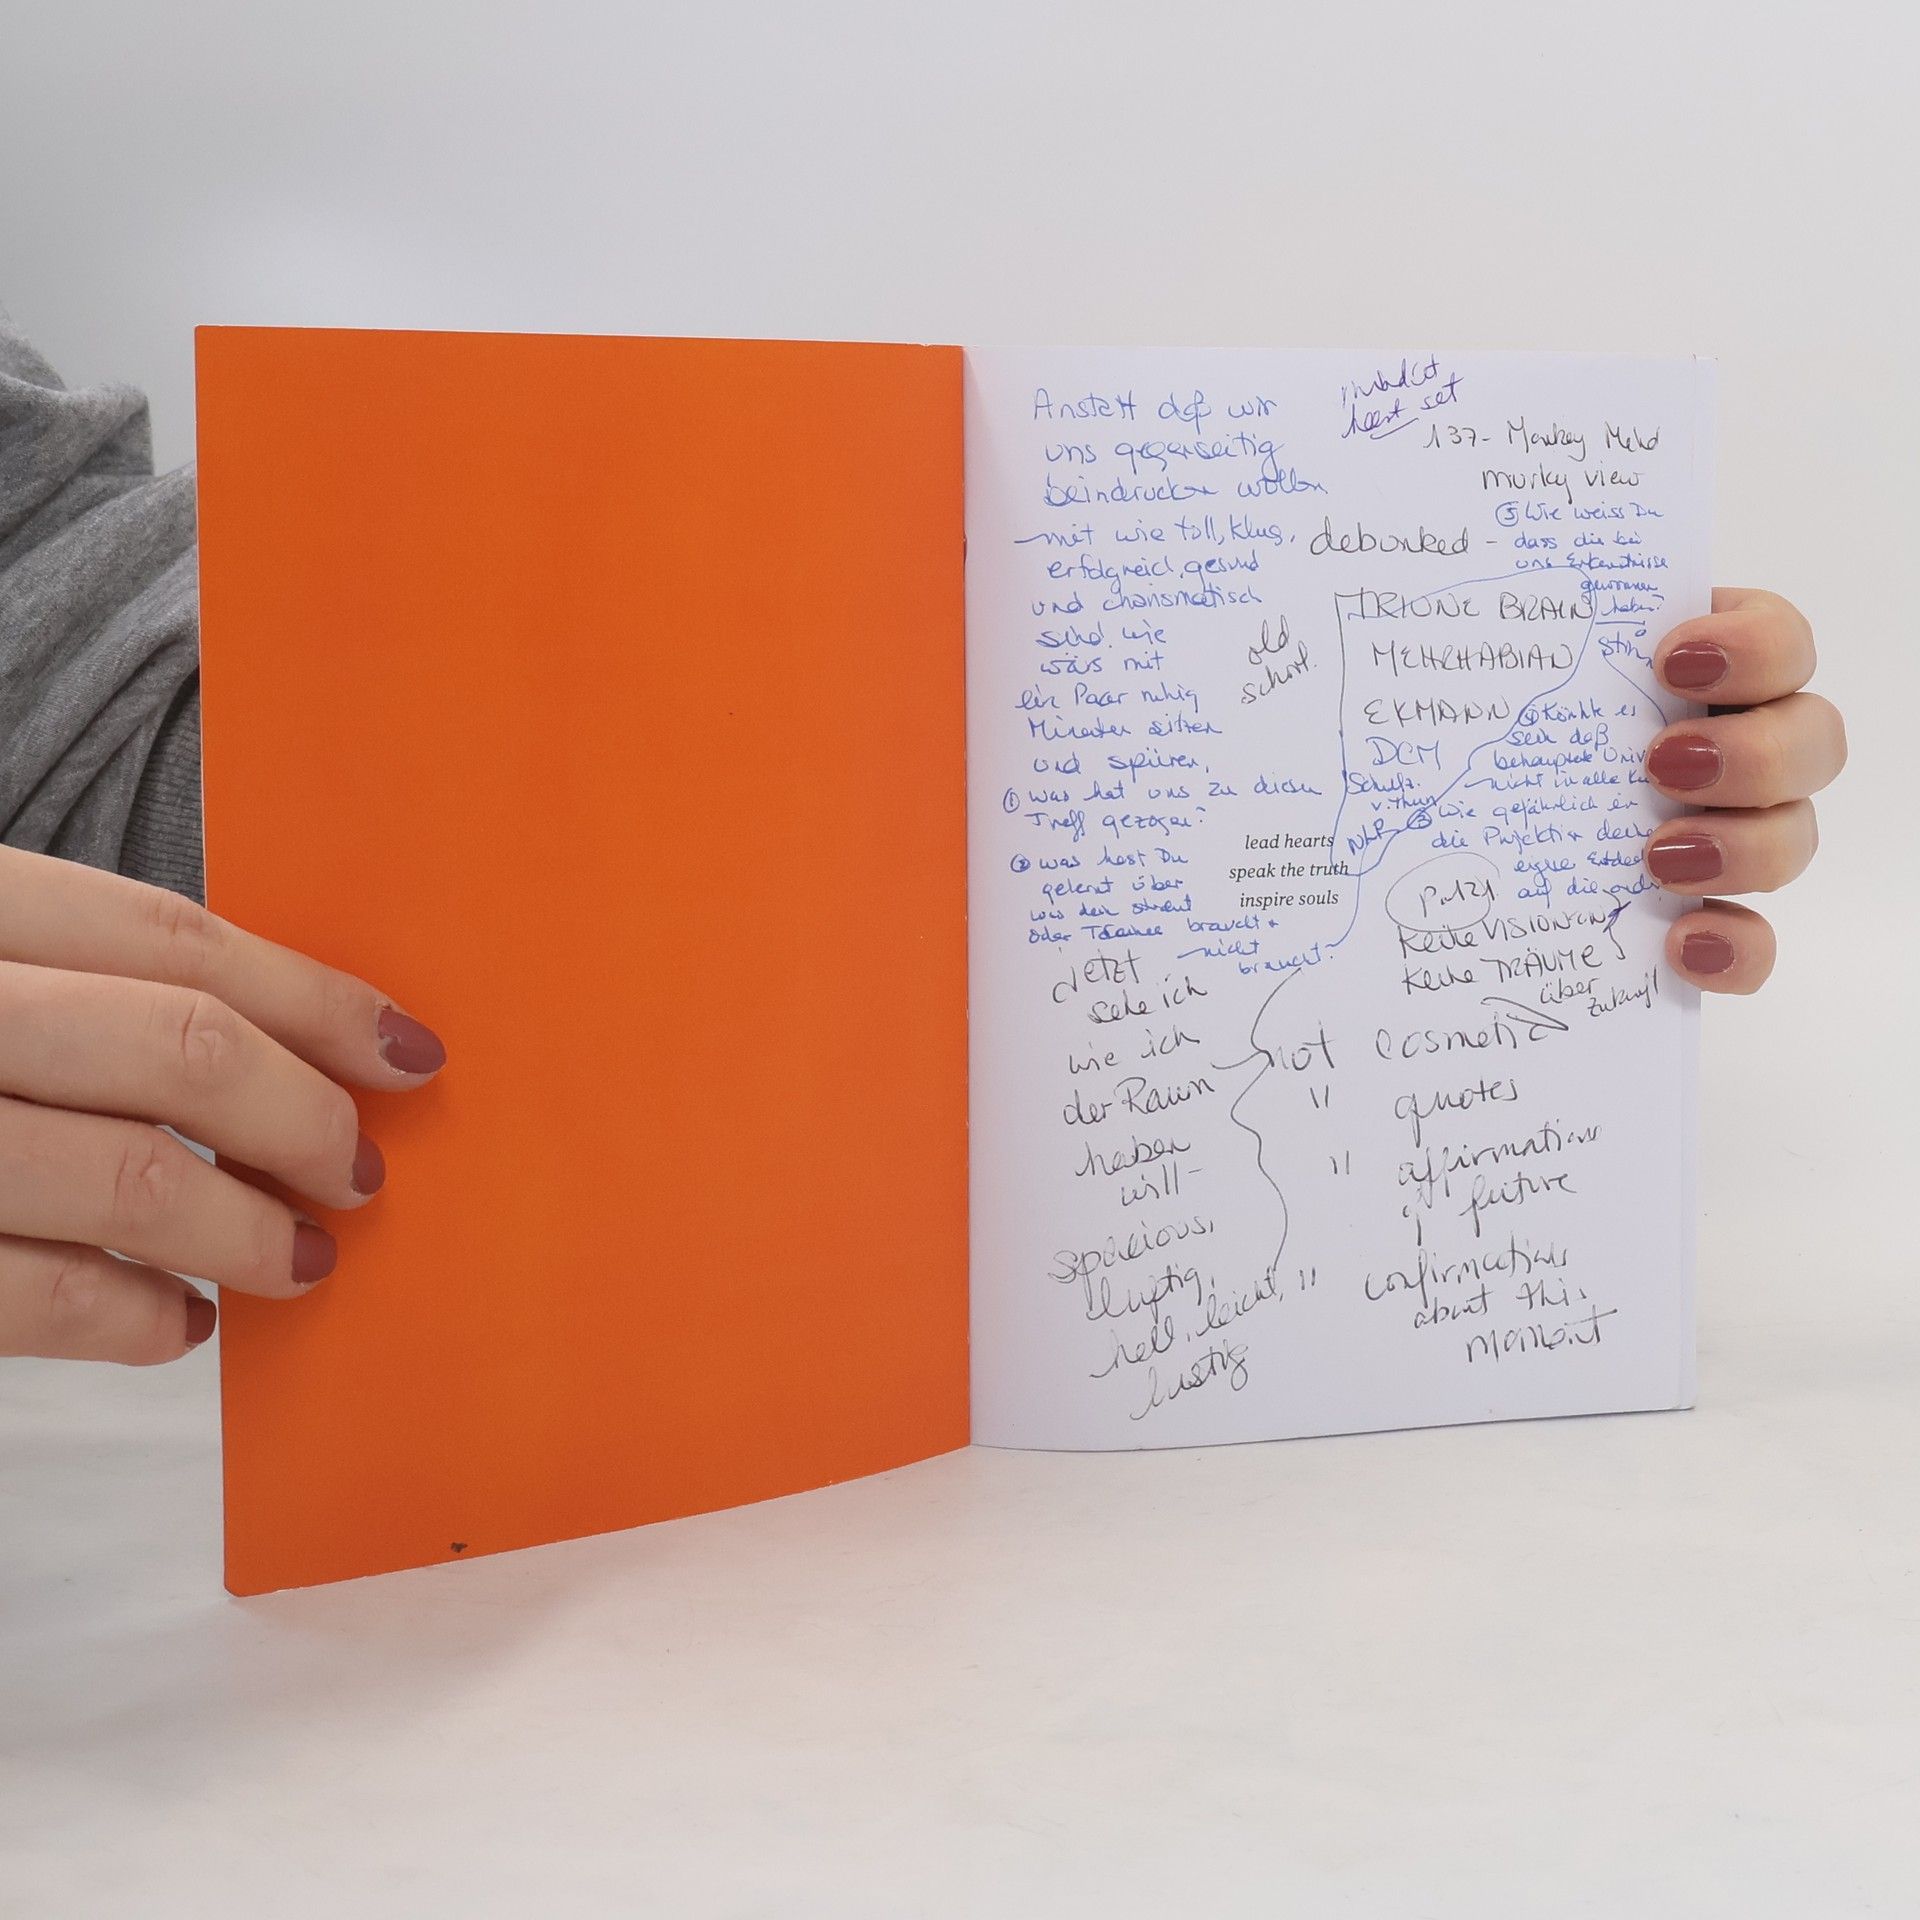 Anstatt daß wir
uns gegenseitig
beindrucken wollen
mit wie toll, klug,
erfolgreich, gesund
und charismatisch
sind. wie
wärs mit
ein Paar ruhig
Minuten sitzen
und spüren,
① was hat uns zu diesem
Treff gezogen?
② was hast Du
gelernt über
was dein
oder Trainee braucht +
nicht
braucht?
Jetzt
sehe ich
wie ich
der Raum
haben
will -
spacious,
luftig,
hell, leicht,
lustig
heart set
137 - Monkey
murky view
debunked -
old
school.
⑤ Wie weiss Du
dass die bei
uns Erkenntnisse
gewonnen
haben?
TRIUNE BRAIN
MEHRHABIAN
EKMANN
DCM
Schulz.
v. Thun
NLP
④ Könnte es
sein daß
behauptete Univ
nicht in alle Ku
③ Wie gefährlich
die Projektion deine
eigene
auf die
lead hearts
speak the truth
inspire souls
p.121
Keine VISIONEN
Keine TRÄUME
über
Zukunft
not cosmetic
" quotes
" affirmations
future
" confirmations
about this
moment